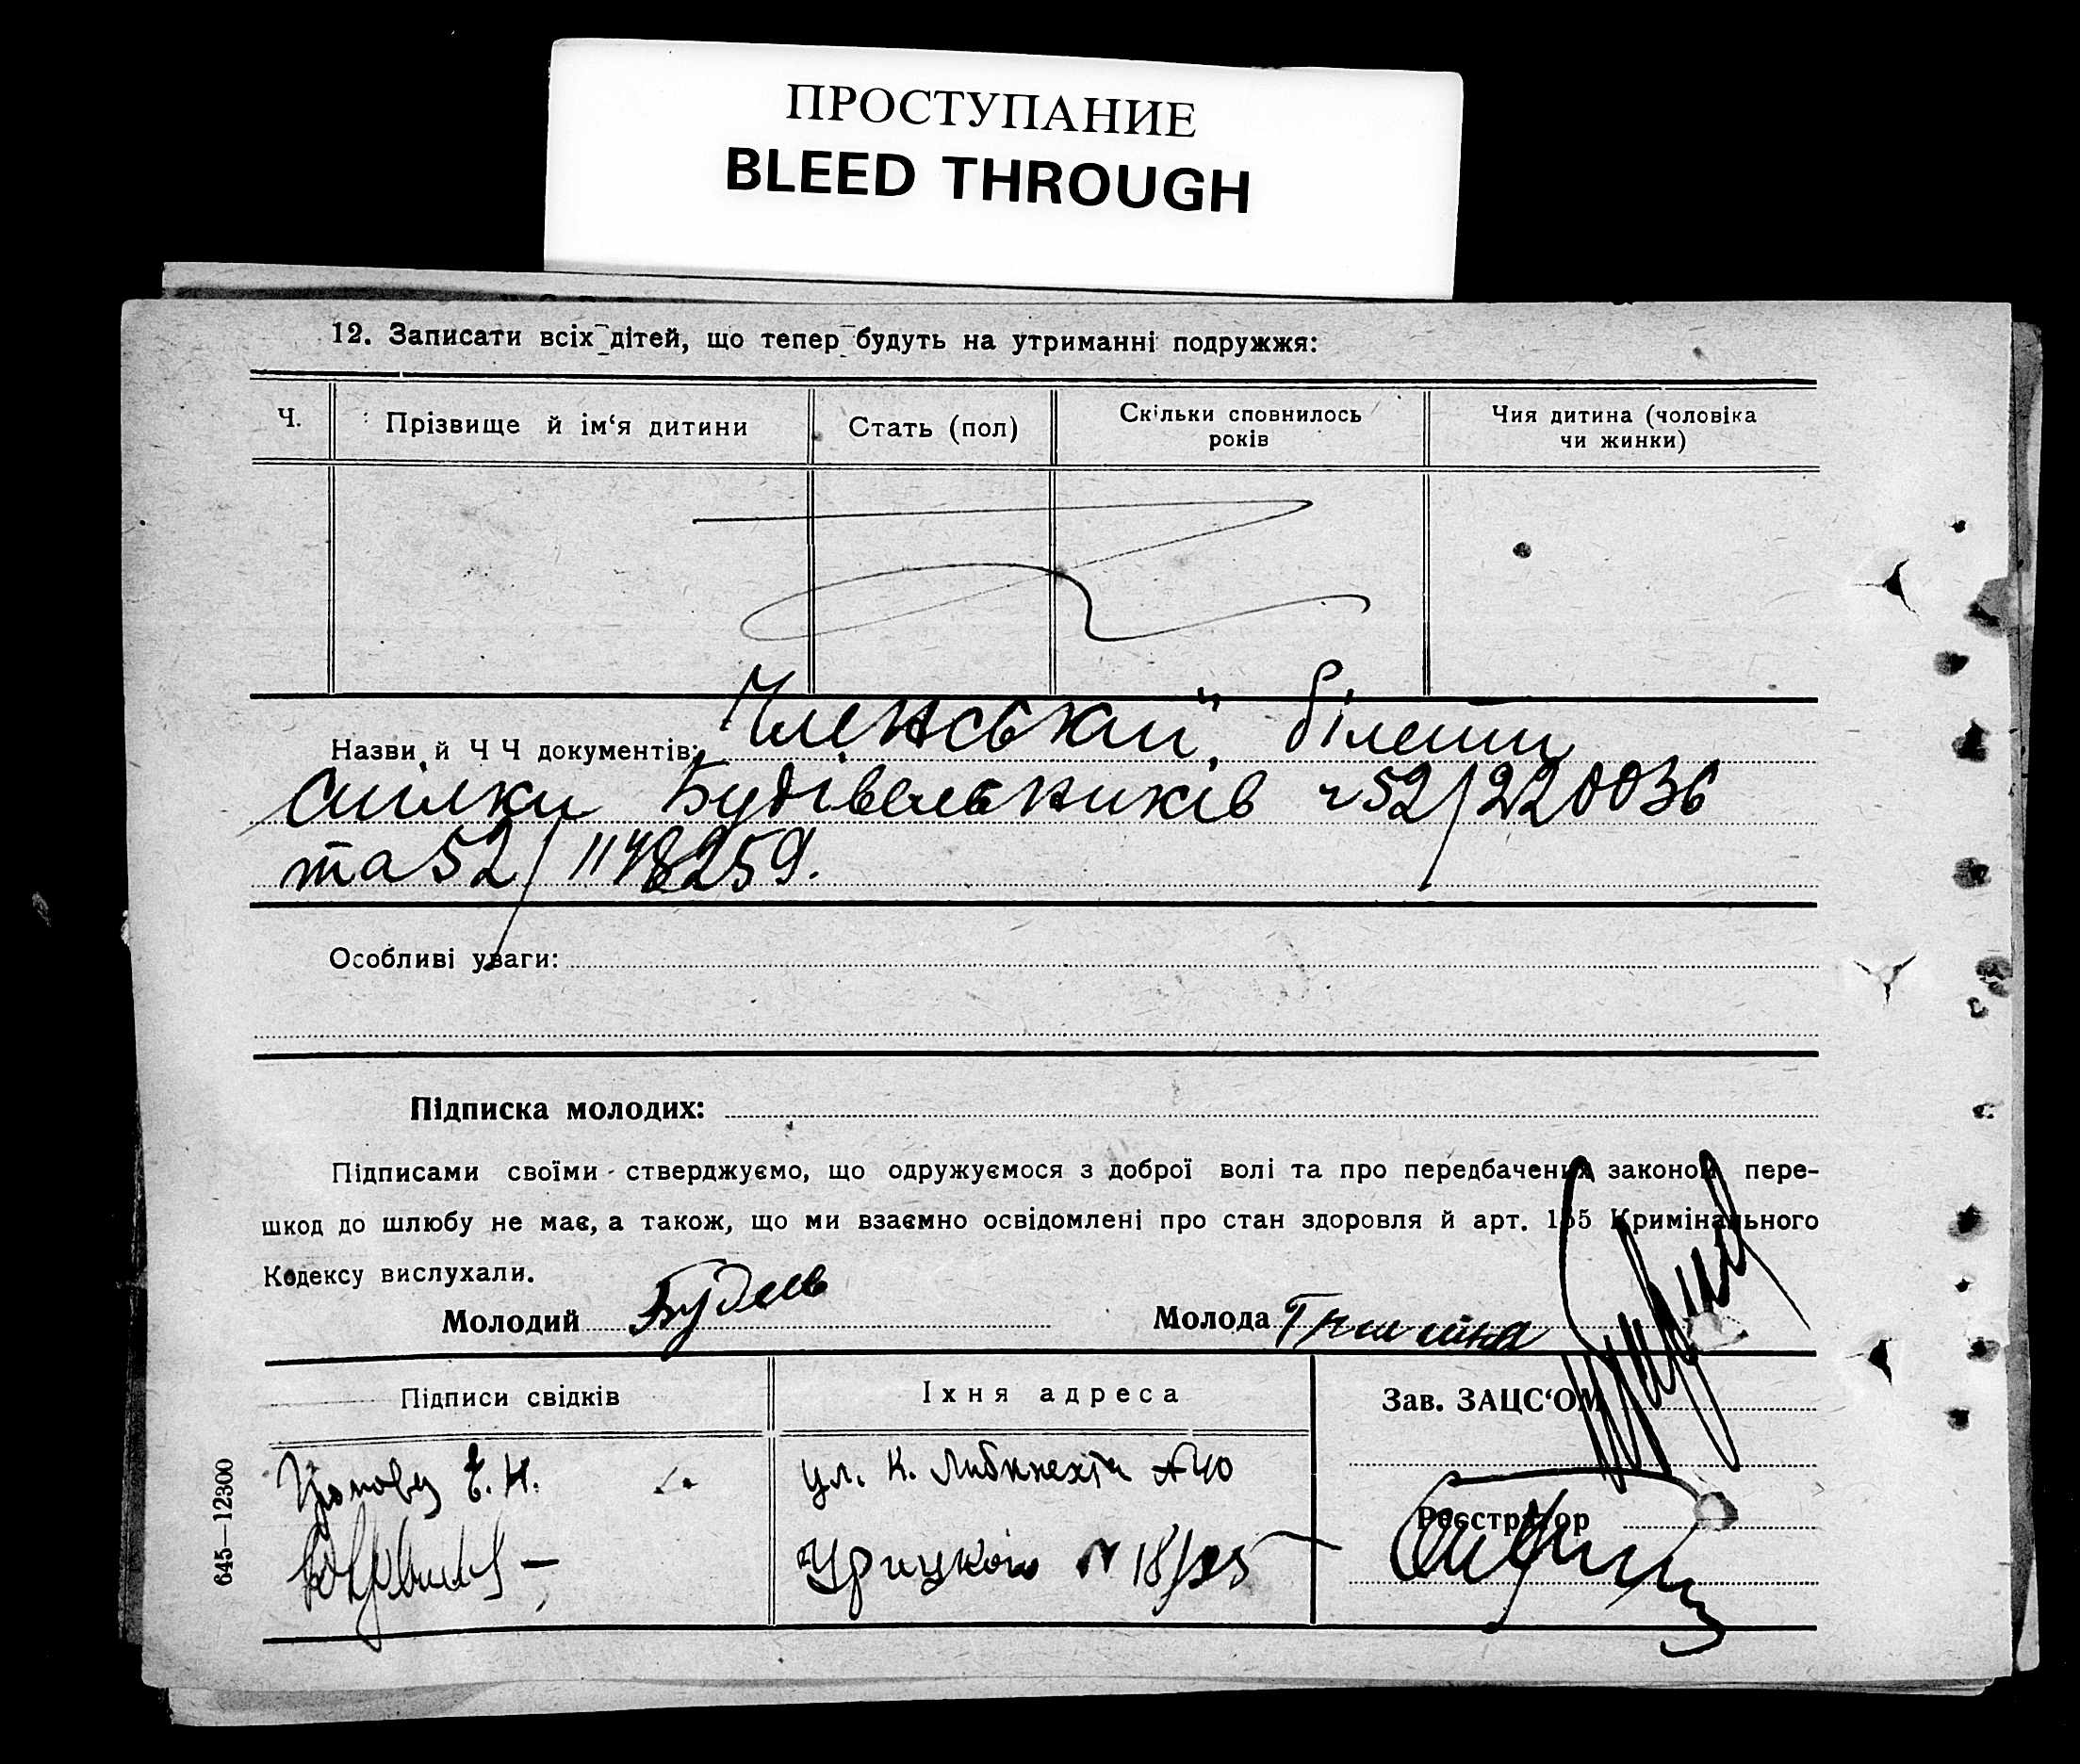 ПРОСТУПАНИЕ
BLEED THROUGH
12. Записати всіх дітей, що тепер будуть на утриманні подружжя:
Ч.
Прізвище й ім‘я дитини
Стать (пол)
Скільки сповнилось
років
Чия дитина (чоловіка
чи жинки)
Назви й ЧЧ документів: Членський білети
спілки Будівельників ч 52/220036
та 52/1148259.
Особливі уваги:
Підписка молодих:
Підписами своїми стверджуємо, що одружуємося з доброї волі та про передбачених законом пере-
шкод до шлюбу не має, а також, що ми взаємно освідомлені про стан здоровля й арт. 155 Кримінального
Кодексу вислухали.
Молодий
Молода
Підписи свідків
Їхня адреса
Зав. ЗАЦС‘ОМ
Е. Н.
ул. К. Либкнехта №40
Реєстратор
Урицкого № 18/
645—12300